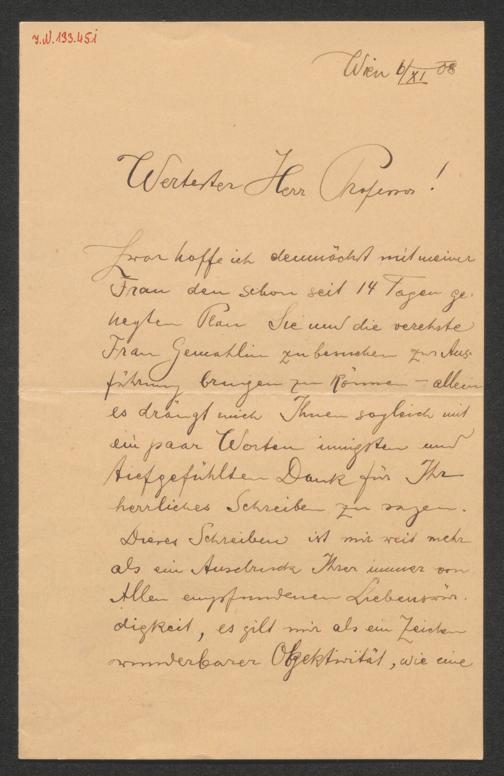 J.N. 193.451
Wien 6/XI 08
Wertester Herr Professor!
Zwar hoffe ich demnächst mit meiner
Frau den schon seit 14 Tagen ge-
hegten Plan Sie und die verehrte
Frau Gemahlin zu besuchen zur Aus-
führung bringen zu können – allein
es drängt mich Ihnen sogleich mit
ein paar Worten innigsten und
tiefgefühlten Dank für Ihr
herrliches Schreiben zu sagen.
Dieses Schreiben ist mir weit mehr
als ein Ausdruck Ihrer immer von
Allen empfundenen Liebenswür-
digkeit, es gilt mir als ein Zeichen
wunderbarer Objektivität, wie eine